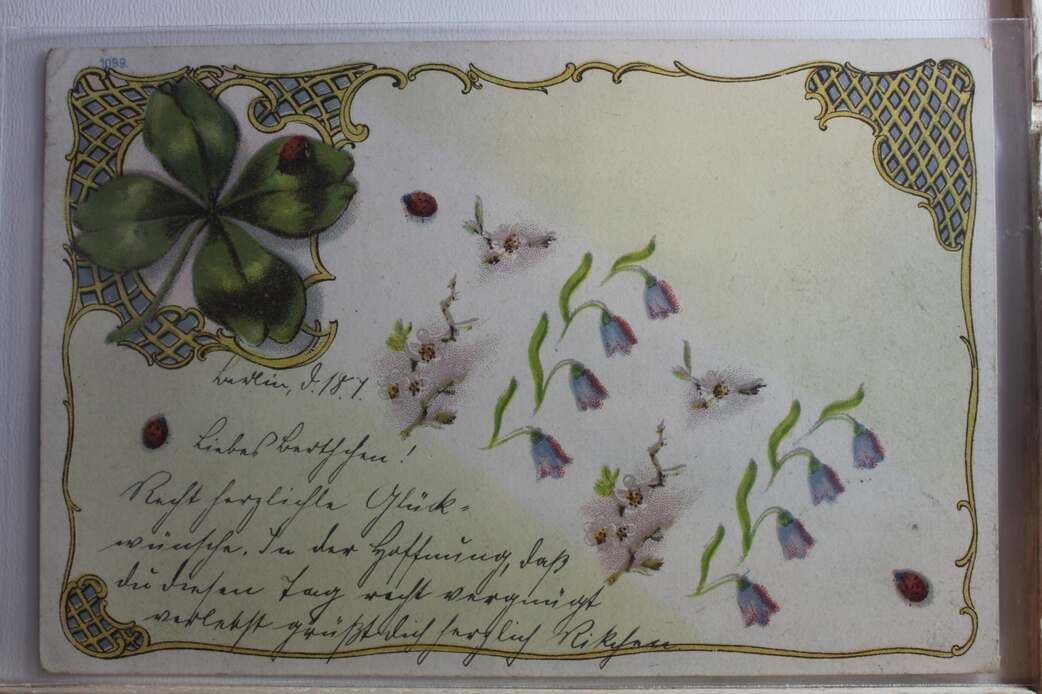 1099.
Berlin, d. 18.7.
Liebes Berthchen!
Recht herzlichste Glück-
wünsche. In der Hoffnung, daß
du diesen Tag recht vergnügt
verlebst grüßt dich herzlich Rikchen